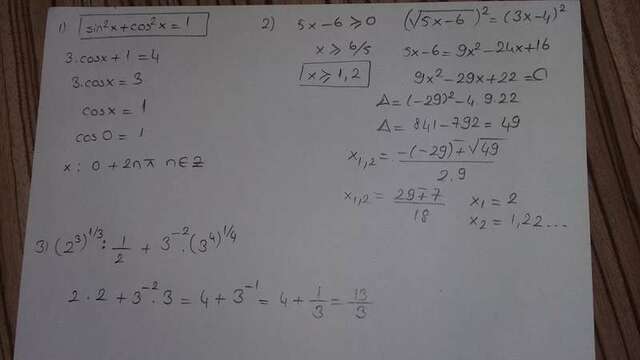 1) sin²x + cos²x = 1
3.cosx + 1 = 4
3.cosx = 3
cosx = 1
cos0 = 1
x : 0 + 2nπ n∈Z
2) 5x - 6 ≥ 0
x ≥ 6/5
x ≥ 1,2
(√5x-6)² = (3x-4)²
5x-6 = 9x² - 24x + 16
9x² - 29x + 22 = 0
Δ = (-29)² - 4.9.22
Δ = 841 - 792 = 49
x₁,₂ = -(-29) ± √49 / 2.9
x₁,₂ = 29 ∓ 7 / 18
x₁ = 2
x₂ = 1,22...
3) (2³)^1/3 : 1/2 + 3⁻² . (3⁴)^1/4
2 . 2 + 3⁻² . 3 = 4 + 3⁻¹ = 4 + 1/3 = 13/3